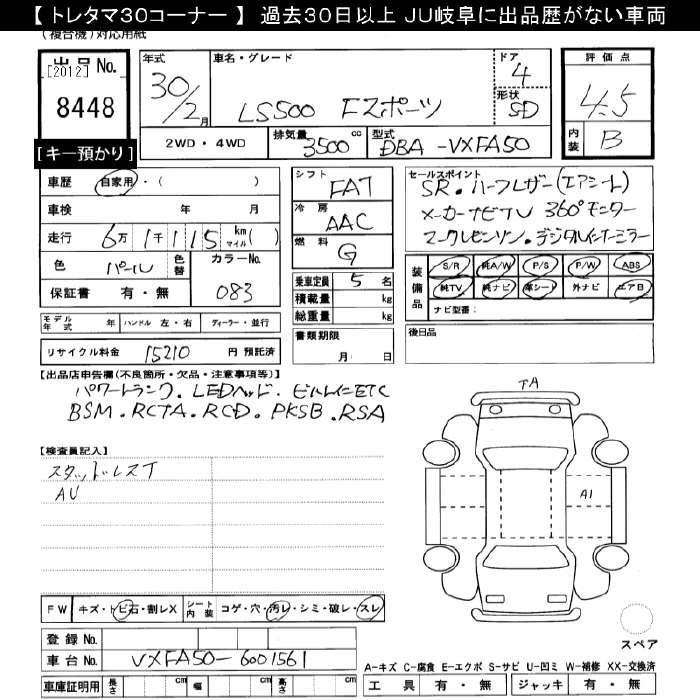 【 トレタマ30コーナー 】 過去30日以上 JU岐阜に出品歴がない車両
(複合機)対応用紙
出品 No.
[2012]
8448
[キー預かり]
年式 車名・グレード ドア 評価点
30/2月 LS500 Fスポーツ 4 4.5
形状 SD
2WD・4WD 排気量 3500 cc 型式 DBA-VXFA50 内装 B
車歴 自家用・( )
車検 年 月
走行 6万1千115 km マイル( )
色 パール 色替 カラーNo. 083
保証書 有・無
シフト FAT
冷房 AAC
燃料 G
乗車定員 5 名
積載量 kg
総重量 kg
書類期限
月 日
セールスポイント
SR・ハーフレザー(エアシート)
メーカーナビTV 360°モニター
マークレビンソン・デジタルインナーミラー
装備品 S/R 純A/W P/S P/W ABS
純TV 純ナビ 革シート 外ナビ エアB
ナビ型番:
後日品
モデル年式 年 ハンドル 左・右 ディーラー・並行
リサイクル料金 15210 円 預託済
【出品店申告欄(不良箇所・欠品・注意事項等)】
パワートランク・LEDヘッド・ビルトインETC
BSM・RCTA・RCD・PKSB・RSA
【検査員記入】
スタッドレスT
AU
TA
A1
FW キズ・トビ石・割レX シート内装 コゲ・穴・汚レ・シミ・破レ・スレ
登録 No.
車台 No. VXFA50-6001561
車庫証明用 長さ cm 幅 cm 高さ cm
スペア
A-キズ C-腐食 E-エクボ S-サビ U-凹ミ W-補修 XX-交換済
工具 有・無 ジャッキ 有・無